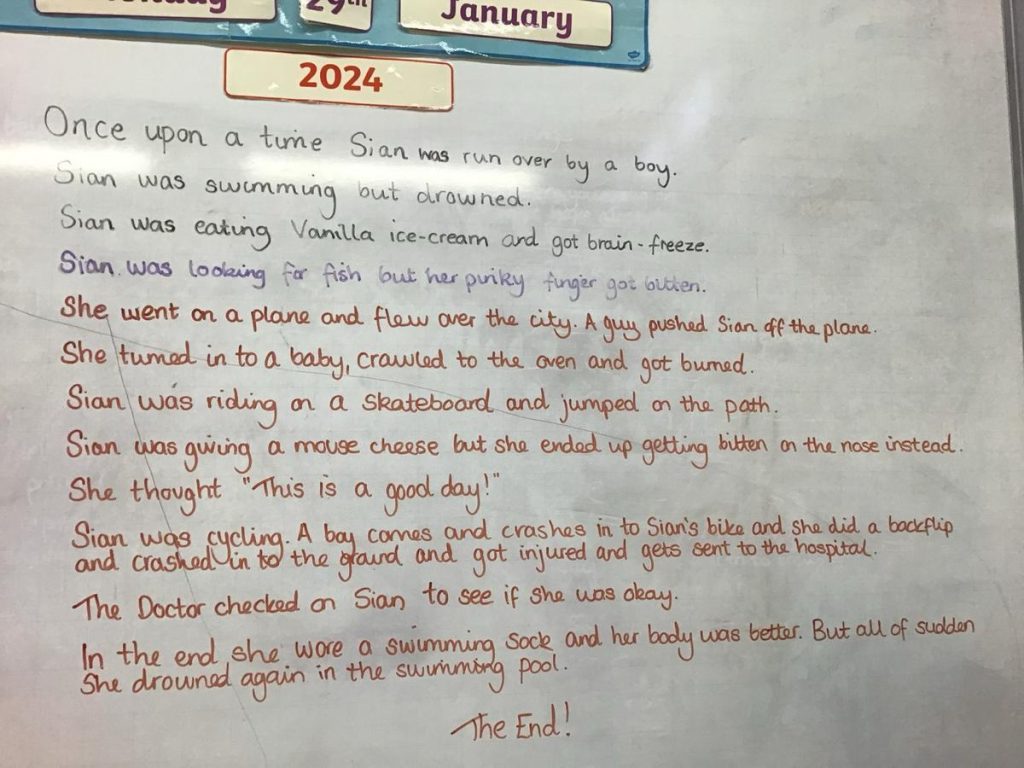 29th January
2024
Once upon a time Sian was run over by a boy.
Sian was swimming but drowned.
Sian was eating Vanilla ice-cream and got brain-freeze.
Sian was looking for fish but her pinky finger got bitten.
She went on a plane and flew over the city. A guy pushed Sian off the plane.
She turned in to a baby, crawled to the oven and got burned.
Sian was riding on a skateboard and jumped on the path.
Sian was giving a mouse cheese but she ended up getting bitten on the nose instead.
She thought "This is a good day!"
Sian was cycling. A boy comes and crashes in to Sian's bike and she did a backflip
and crashed in to the ground and got injured and gets sent to the hospital.
The Doctor checked on Sian to see if she was okay.
In the end, she wore a swimming sock and her body was better. But all of sudden
She drowned again in the swimming pool.
The End!